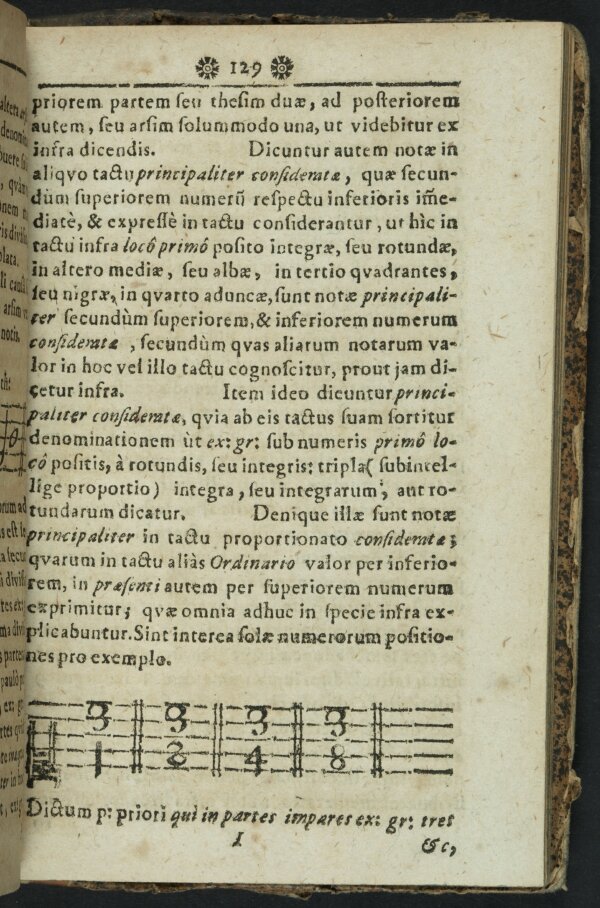 129
priorem partem ſeu theſim duæ, ad poſteriorem
autem, ſeu arſim ſolummodo una, ut videbitur ex
infra dicendis. Dicuntur autem notæ in
aliqvo tactu principaliter conſideratæ, quæ ſecun-
dùm ſuperiorem numerũ reſpectu inferioris im̃e-
diatè, & expreſſè in tactu conſiderantur, ut hìc in
tactu infra locô primô poſito integræ, ſeu rotundæ,
in altero mediæ, ſeu albæ, in tertio qvadrantes,
ſeu nigræ, in qvarto aduncæ, ſunt notæ principali-
ter ſecundùm ſuperiorem, & inferiorem numerum
conſideratæ, ſecundùm qvas aliarum notarum va-
lor in hoc vel illo tactu cognoſcitur, prout jam di-
cetur infra. Item ideo dicuntur princi-
paliter conſideratæ, qvia ab eis tactus ſuam ſortitur
denominationem ùt ex: gr: ſub numeris primô lo-
cô poſitis, à rotundis, ſeu integris: tripla (ſubintel-
lige proportio) integra, ſeu integrarum, aut ro-
tundarum dicatur. Denique illæ ſunt notæ
principaliter in tactu proportionato conſideratæ;
qvarum in tactu aliàs Ordinario valor per inferio-
rem, in præſenti autem per ſuperiorem numerum
exprimitur; qvæ omnia adhuc in ſpecie infra ex-
plicabuntur. Sint interea ſolæ numerorum poſitio-
nes pro exemplo.
3 3 3 3
1 2 4 8
Dictum p: priori qui in partes impares ex: gr: tres
I &c,